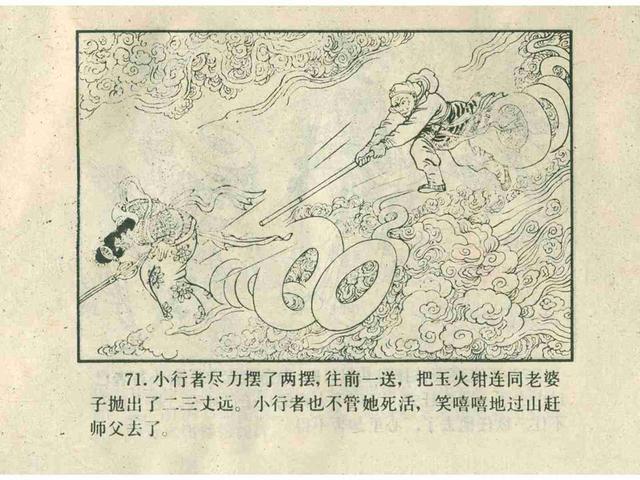 71. 小行者尽力摆了两摆，往前一送，把玉火钳连同老婆
子抛出了二三丈远。小行者也不管她死活，笑嘻嘻地过山赶
师父去了。